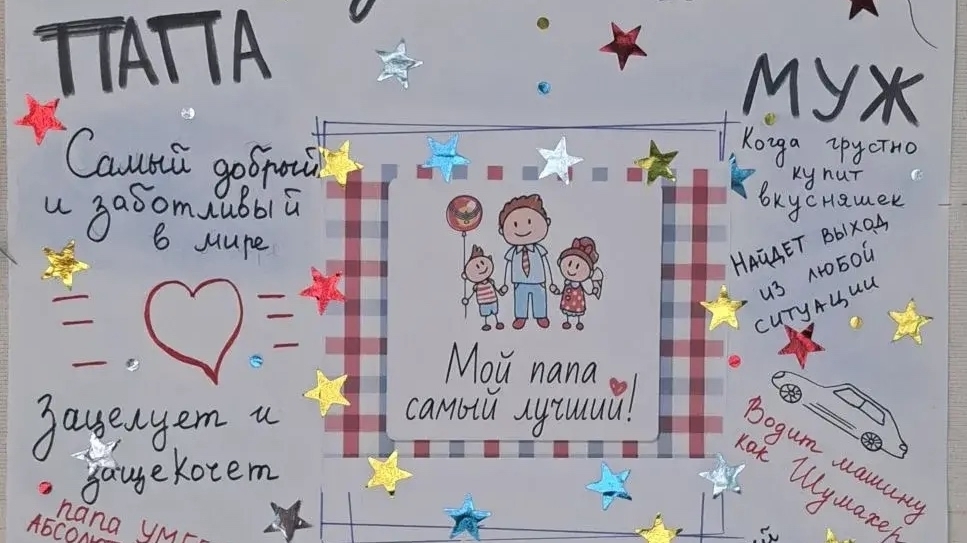 ПАПА
Самый добрый
и заботливый
в мире
Зацелует и
защекочет
папа
Мой папа
самый лучший!
МУЖ
Когда грустно
купит
вкусняшек
НАЙДЕТ ВЫХОД
ИЗ ЛЮБОЙ
СИТУАЦИИ
Водит машину
как Шумахер